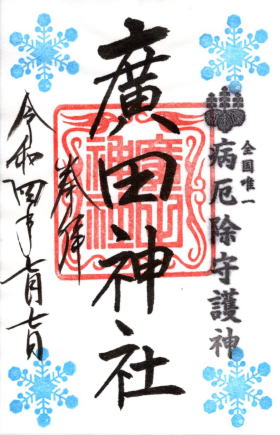 全国唯一
病厄除守護神
廣田神社
奉拝
令和四年七月七日